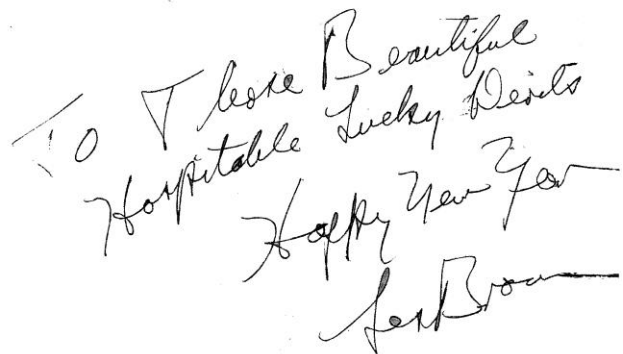 To Those Beautiful
Hospitable Lucky Devils
Happy New Year
Les Brown